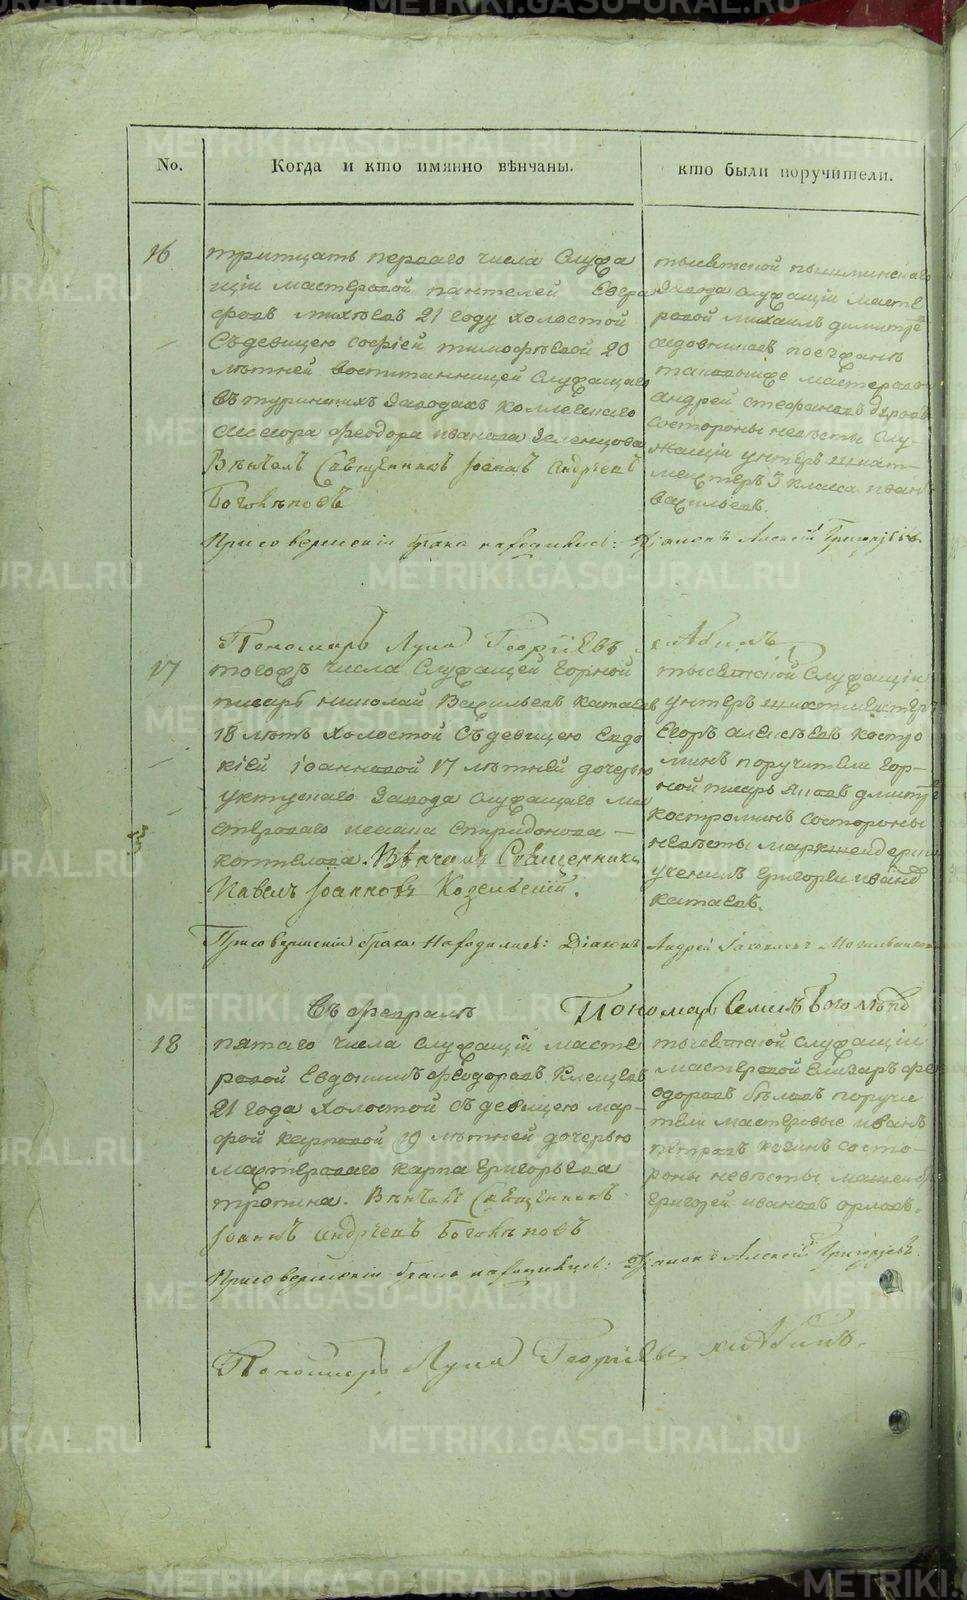 No.
Когда и кто имянно вѣнчаны.
кто были поручители.
16
тритцать перваго числа Служа
щій мастеровой пантелей
21 году холостой
Съдевицею софіей тимофѣевой 20
лѣтней воспитанницей Служащаго
втуринскихъ Заводахъ коллежскаго
асесора феодора иванова Зеленцова
Вѣнчалъ Священникъ Іоаннъ Андреевъ
Боголѣповъ
тысяцкой пышминскаго
Завода служащій масте
ровой михаилъ димитре
поезжанъ
таковыіже мастеровой
андрей стефановъ
Состороны невѣсты Слу-
жащій унтеръ шихт-
мейстеръ 3 класса иванъ
васильевъ.
При совершеніи брака находились: Діаконъ Алексій Григорьевъ
Пономарь Лука Георгіевъ
17
тогожъ числа Служащей горной
писарь николай Васильевъ катаевъ
18 лѣтъ холостой Съдевицею Евдо
кіей іоанновой 17 лѣтней дочерью
уктускаго Завода служащаго ма
стероваго ивана Спиридонова
коптелова. Вѣнчалъ Священникъ
Павелъ Іоанновъ Козельскій.
тысяцкой Служащій
унтеръ шихтмейстеръ
Егоръ алексѣевъ костро
минъ поручители гор-
ной писарь яковъ дмитре
костроминъ состороны
невѣсты маркшейдерскій
ученикъ григорей иванов
катаевъ.
При совершеніи брака Находились: Діаконъ Андрей Іаковлевъ
Въ февралѣ
Пономарь Семенъ Боголѣпо
18
пятаго числа служащій масте
ровой Евдокимъ феодоровъ Клещевъ
21 года холостой съ девицею мар-
фой карповой 19 лѣтней дочерью
мастероваго карпа григорьева
тропина. Вѣнчалъ Священникъ
Іоаннъ Андреевъ Боголѣповъ
тысяцкой служащій
мастеровой Елизаръ фе
одоровъ бѣловъ поручи
тели мастеровые иванъ
петровъ козинъ состо-
роны невѣсты
григорей ивановъ орловъ.
При совершеніи брака находились: Діаконъ Алексій Григорьевъ.
Пономарь Лука Георгіевъ
METRIKI.GASO-URAL.RU